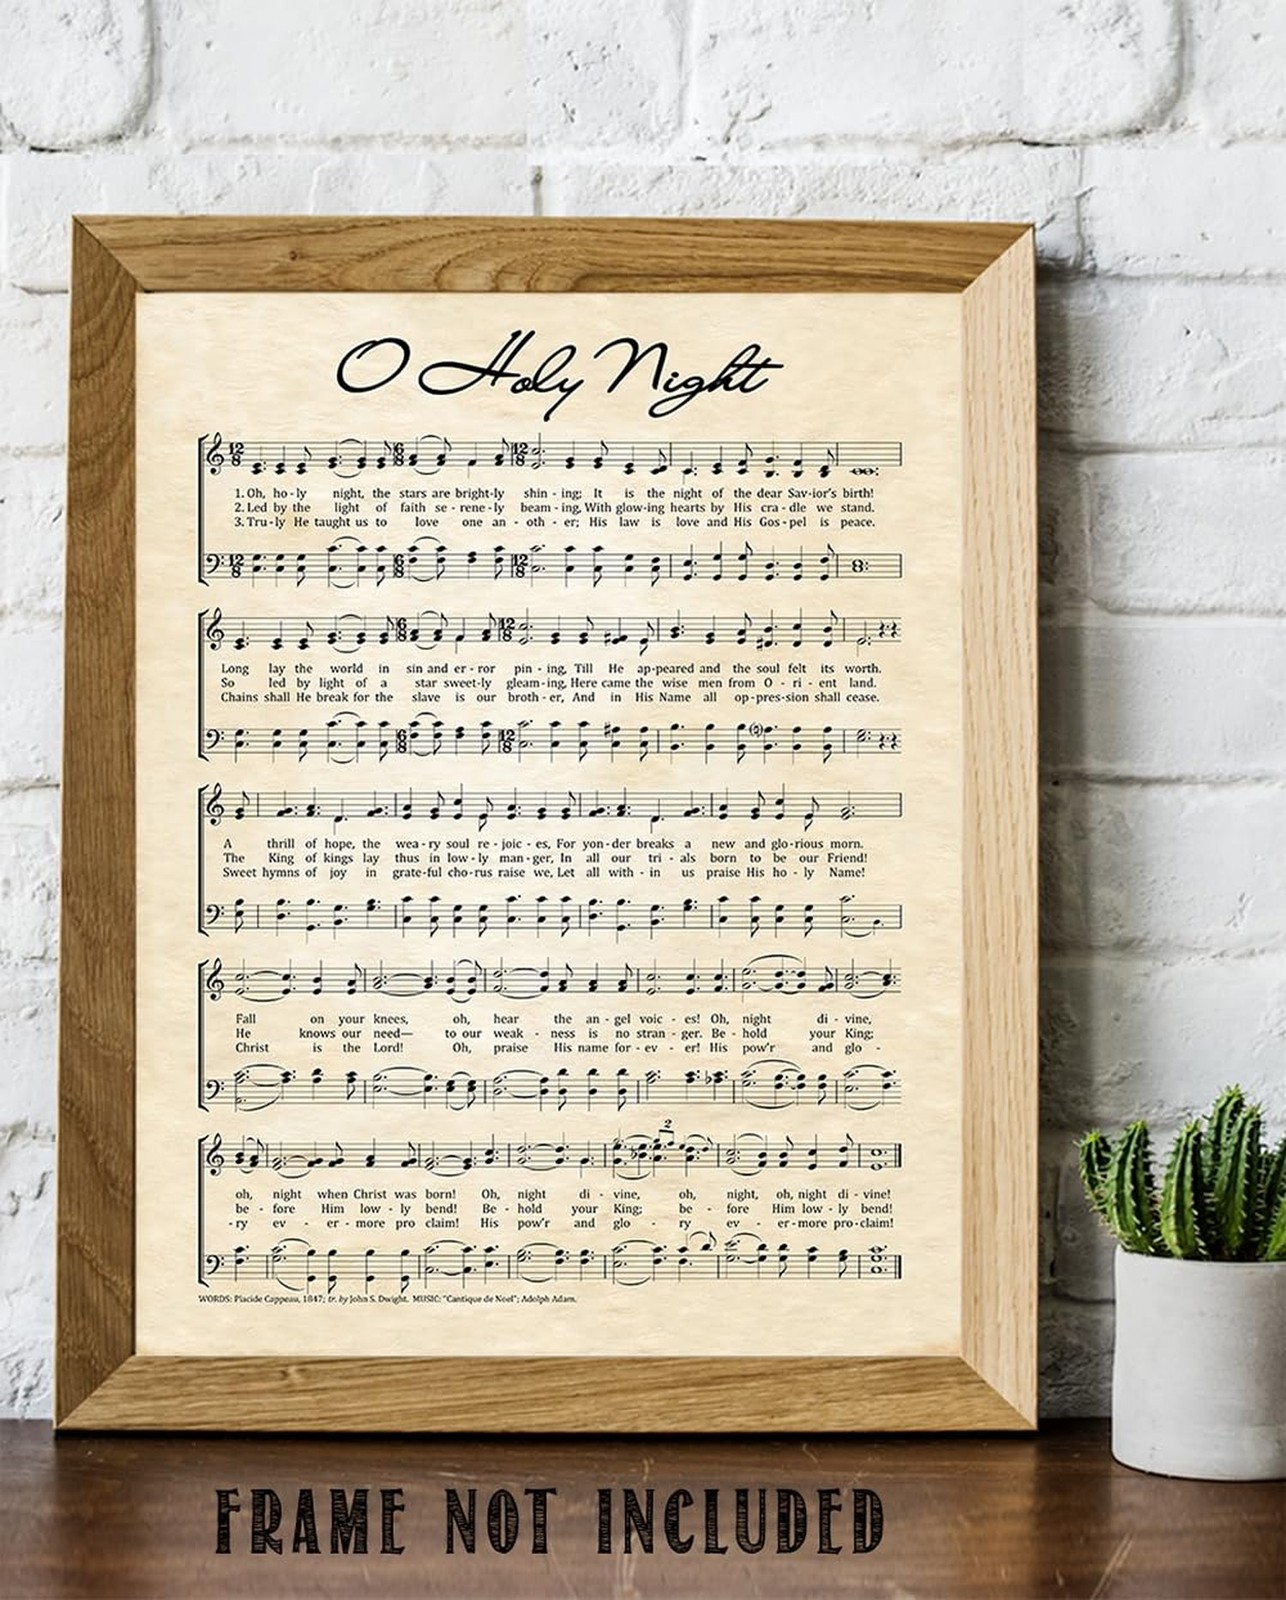 O Holy Night
1. Oh, ho - ly night, the stars are bright-ly shin - ing; It is the night of the dear Sav-ior's birth!
2. Led by the light of faith se - rene - ly beam - ing, With glow-ing hearts by His cra - dle we stand.
3. Tru - ly He taught us to love one an - oth - er; His law is love and His Gos - pel is peace.
Long lay the world in sin and er - ror pin - ing, Till He ap-peared and the soul felt its worth.
So led by light of a star sweet-ly gleam-ing, Here came the wise men from O - ri - ent land.
Chains shall He break for the slave is our broth - er, And in His Name all op-pres-sion shall cease.
A thrill of hope, the wea - ry soul re - joic - es, For yon-der breaks a new and glo-rious morn.
The King of kings lay thus in low - ly man - ger, In all our tri - als born to be our Friend!
Sweet hymns of joy in grate-ful cho-rus raise we, Let all with - in us praise His ho - ly Name!
Fall on your knees, oh, hear the an - gel voic - es! Oh, night di - vine,
He knows our need— to our weak - ness is no stran - ger. Be - hold your King;
Christ is the Lord! Oh, praise His name for - ev - er! His pow'r and glo -
2
oh, night when Christ was born! Oh, night di - vine, oh, night, oh, night di - vine!
be - fore Him low - ly bend! Be - hold your King; be - fore Him low - ly bend!
-ry ev - er - more pro claim! His pow'r and glo - ry ev - er - more pro-claim!
WORDS: Placide Cappeau, 1847; tr. by John S. Dwight. MUSIC: "Cantique de Noel"; Adolph Adam.
FRAME NOT INCLUDED